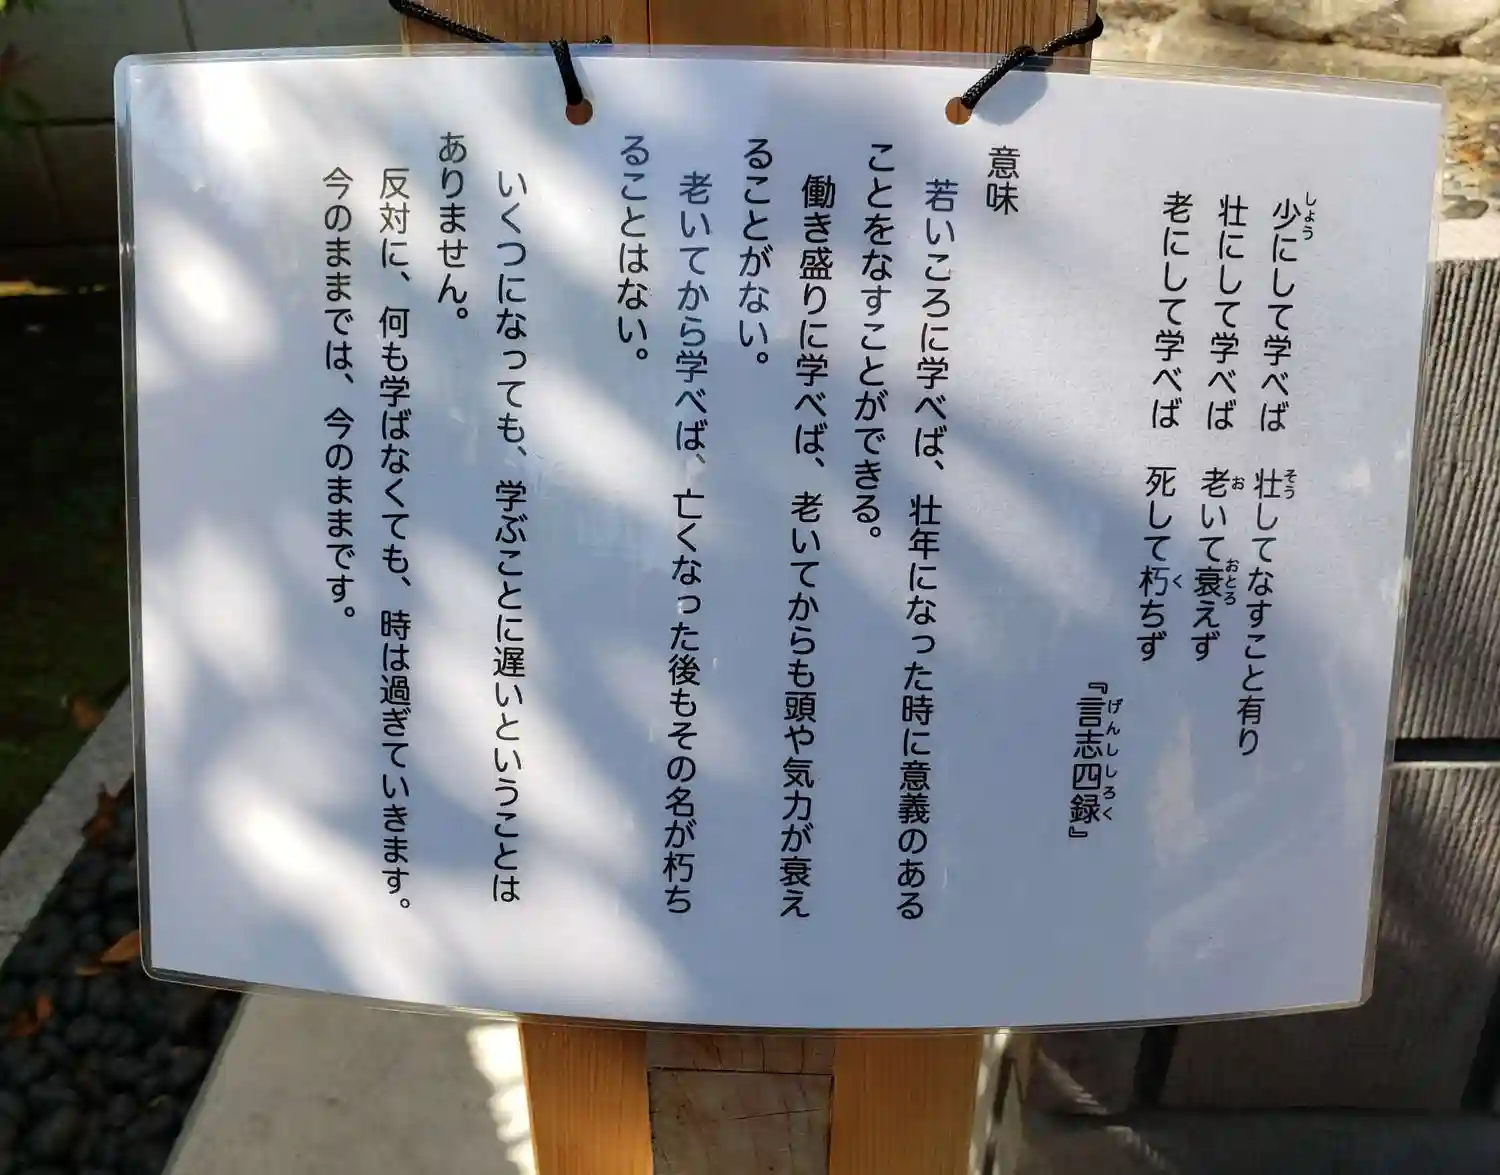 少にして学べば　壮してなすこと有り
壮にして学べば　老いて衰えず
老にして学べば　死して朽ちず
『言志四録』
意味
若いころに学べば、壮年になった時に意義のある
ことをなすことができる。
働き盛りに学べば、老いてからも頭や気力が衰え
ることがない。
老いてから学べば、亡くなった後もその名が朽ち
ることはない。
いくつになっても、学ぶことに遅いということは
ありません。
反対に、何も学ばなくても、時は過ぎていきます。
今のままでは、今のままです。